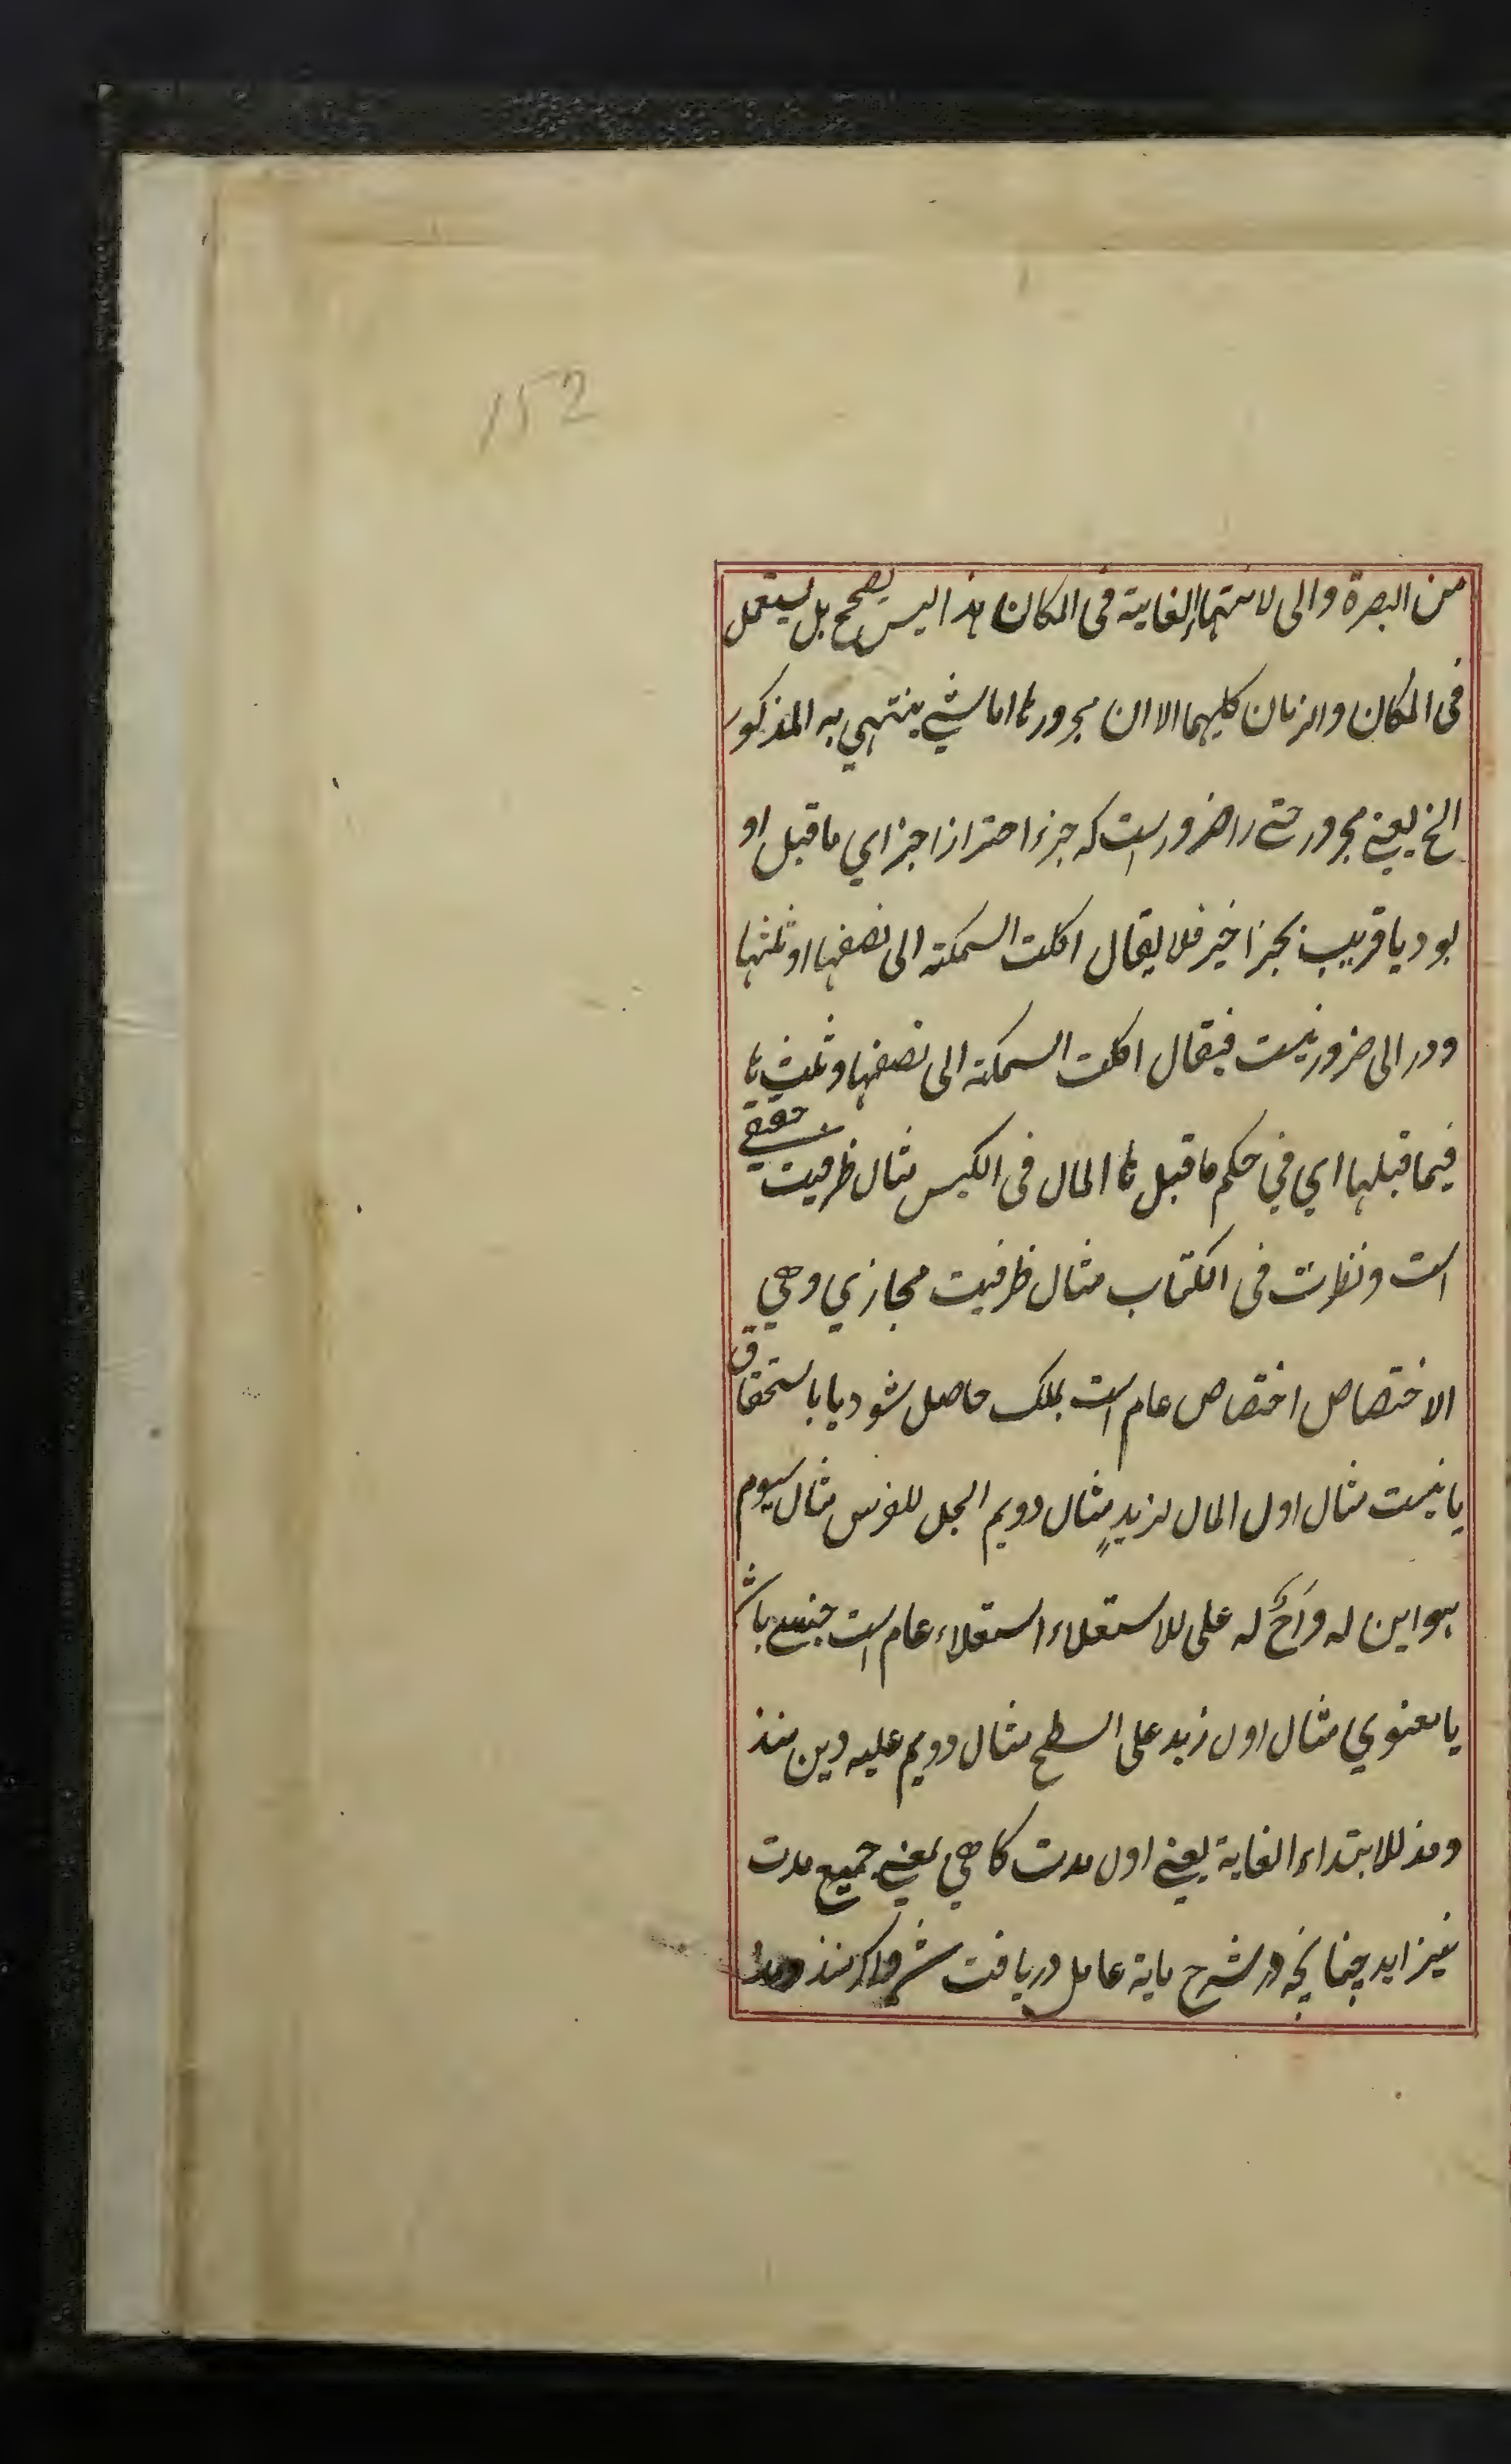 152
من البصرة والى لانتهاء الغاية فى المكان هذا ليس بصحيح بل يستعمل
فى المكان والزمان كليهما الا ان مجرورها اما شيئ ينتهي به المذكور
الخ يعنے مجرور حتے را ضرورست كه جزء احتراز اجزاي ماقبل او
بود يا قريب بجزء اخير فلا يقال اكلت السمكة الى نصفها او ثلثها
ودر الى ضرور نيست فيقال اكلت السمكة الى نصفها وثلثها
فيما قبلها اي في حكم ماقبل ها المال فى الكيس مثال ظرفيت حقيقے
است ونظرت فى الكتاب مثال ظرفيت مجازي وهي
الاختصاص اختصاص عام است بملك حاصل شود يا باستحقاق
يا نيست مثال اول المال لزيدٍ مثال دويم الجل للفرس مثال سيوم
هو ابن له واَخٌ له على للاستعلاء استعلاء عام است جنسے باشد
يا معنوي مثال اول زيد على السطح مثال دويم عليه دين منذ
ومذ للابتداء الغاية يعنے اول مدت كاهي بمعنے جميع مدت
نيز ايد چنانچه در شرح ماية عامل دريافت